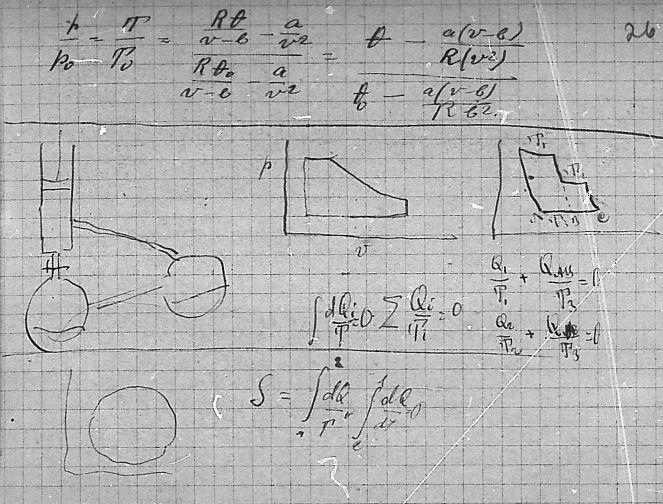 26
p/p₀ = T/T₀ = (Rθ/(v-b) - a/v²)/(Rθ₀/(v-b) - a/v²) = (θ - a(v-b)/R(v²))/(θ₀ - a(v-b)/R b².)
p
v
T₁
T₂
T₃ B
e
Q₁/T₁ + Q_AB/T₃ = 0
∫ dQᵢ/T = 0 ∑ Qᵢ/Tᵢ = 0
Q₂/T₂ + Q/T₃ = 0
S = ∫ dQ/T